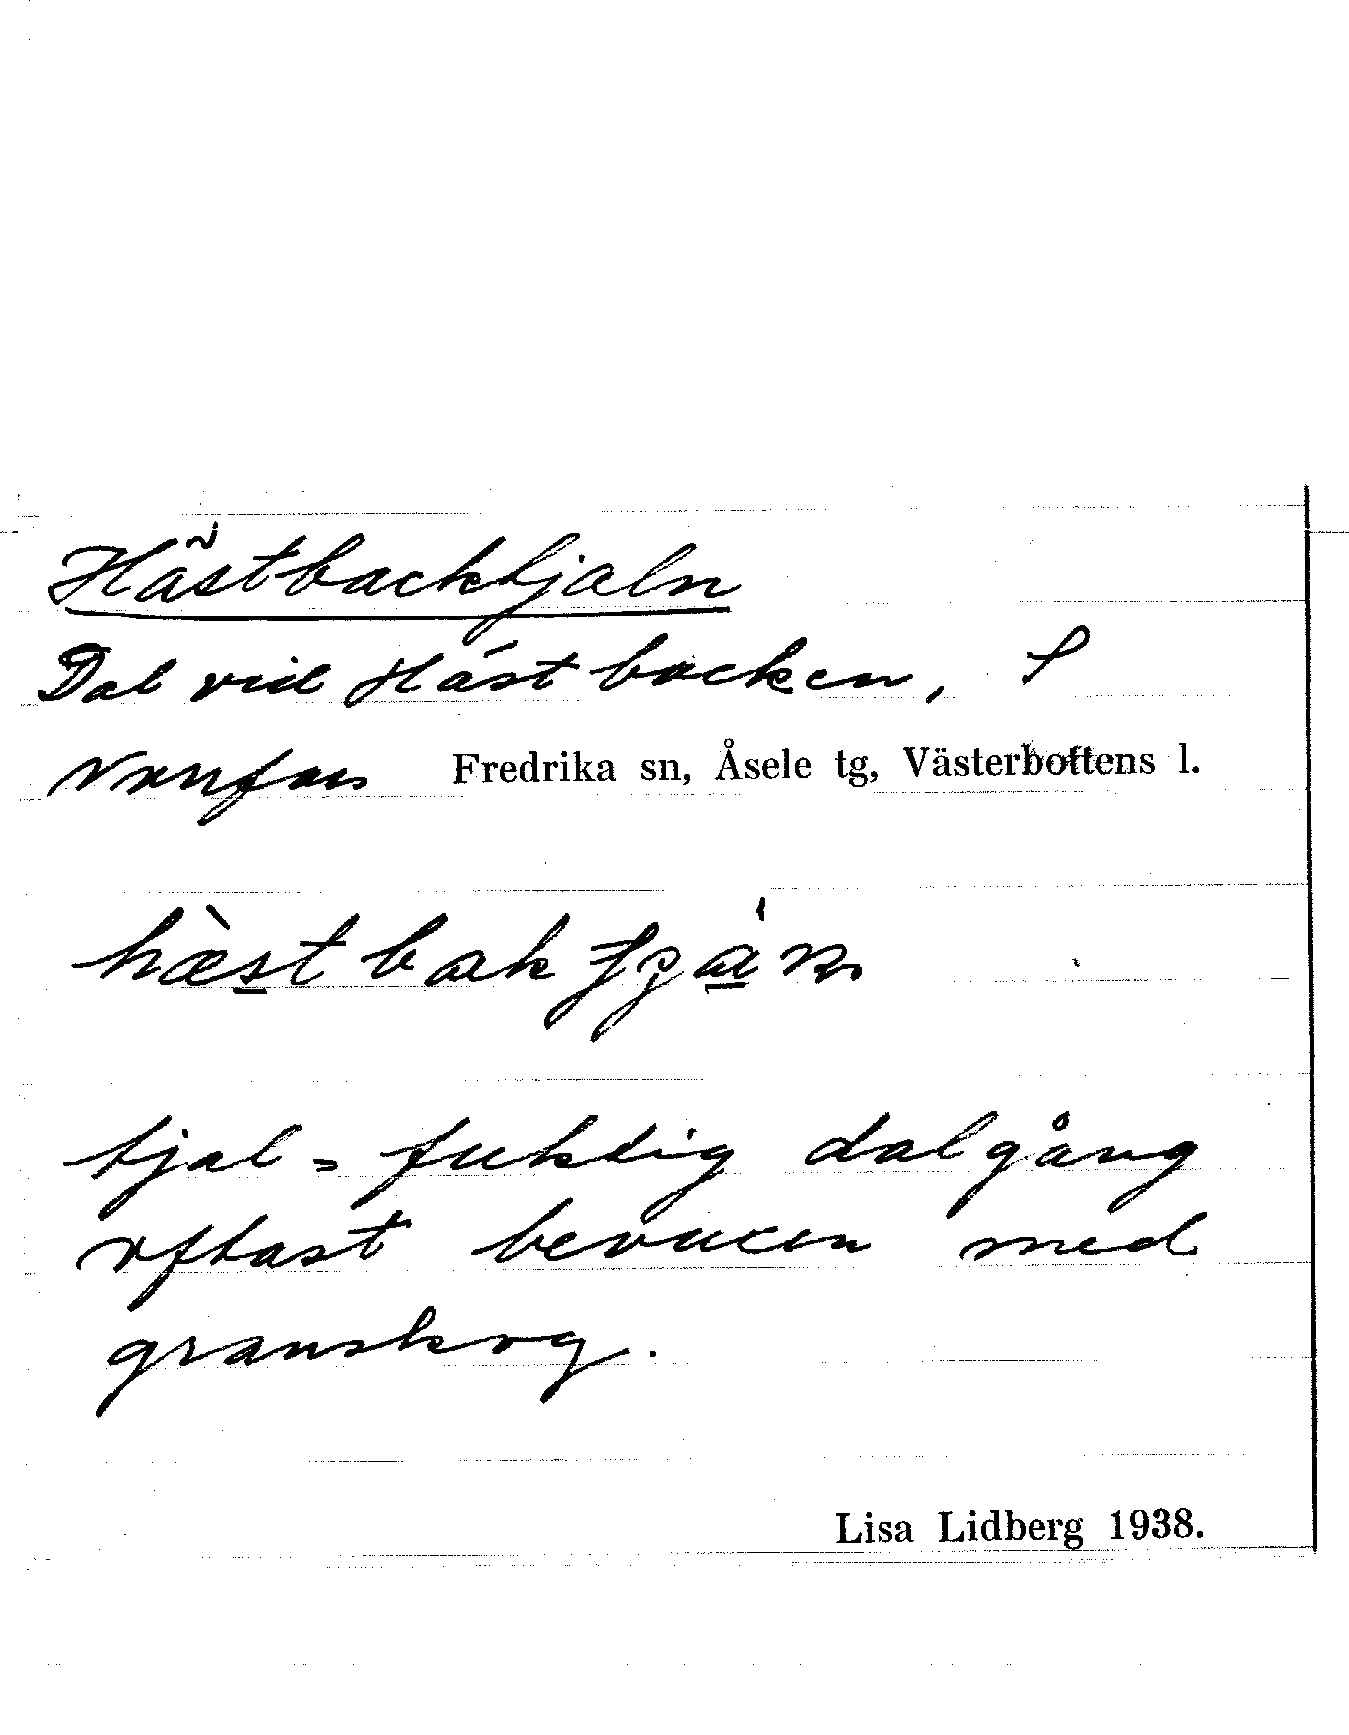 Hästbacktjaln
Dal vid Hästbacken, S
Fredrika sn, Åsele tg, Västerbottens l.
tjal = fuktig dalgång
oftast bevuxen med
granskog.
Lisa Lidberg 1938.